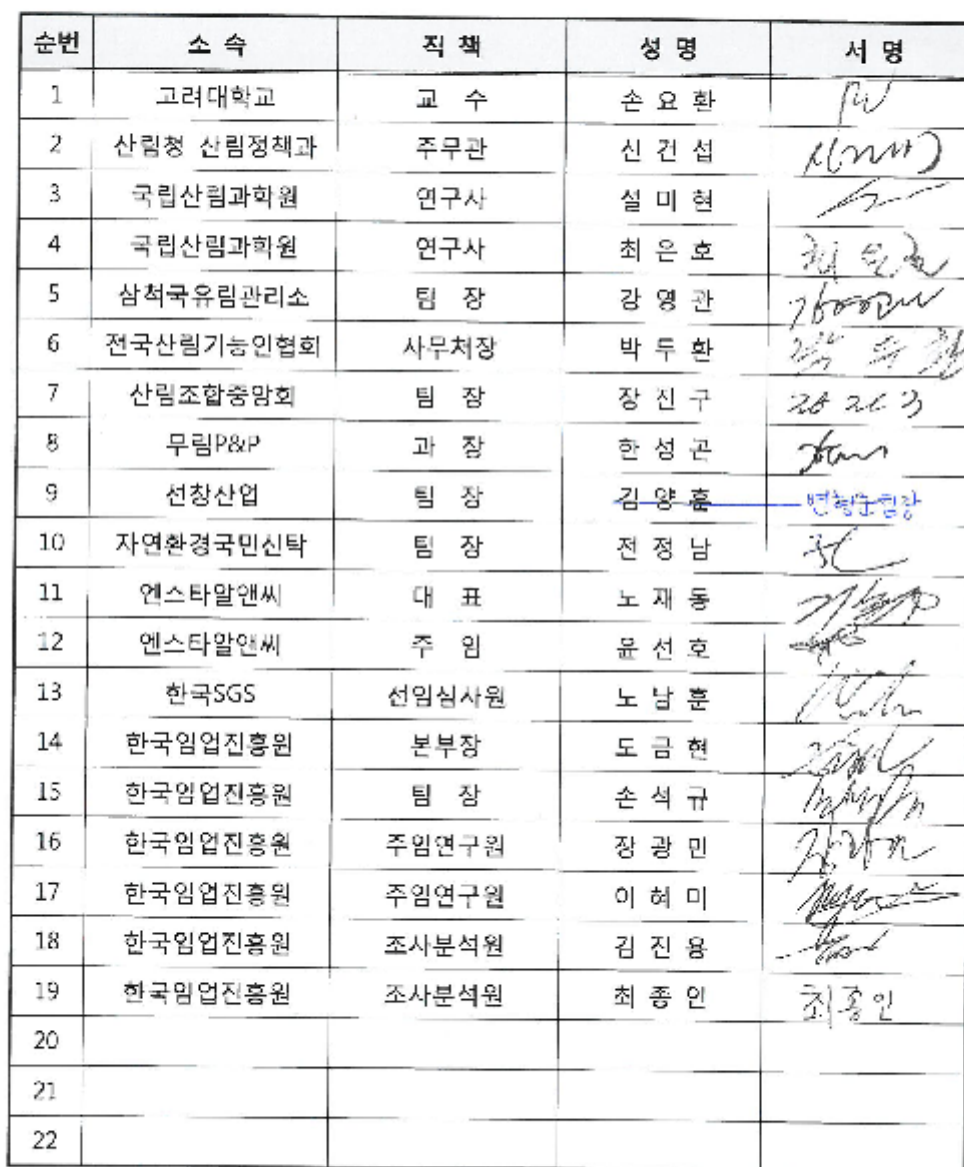 순번 소 속 직 책 성 명 서 명
1 고려대학교 교 수 손 요 환
2 산림청 산림정책과 주무관 신 건 섭
3 국립산림과학원 연구사 설 미 현
4 국립산림과학원 연구사 최 은 호
5 삼척국유림관리소 팀 장 강 영 관
6 전국산림기능인협회 사무처장 박 두 환 박 두 환
7 산림조합중앙회 팀 장 장 진 구
8 무림P&P 과 장 한 성 곤
9 선창산업 팀 장 김 양 훈
10 자연환경국민신탁 팀 장 전 정 남 전
11 엔스타알앤씨 대 표 노 재 동
12 엔스타알앤씨 주 임 윤 선 호
13 한국SGS 선임심사원 노 남 훈
14 한국임업진흥원 본부장 도 금 현
15 한국임업진흥원 팀 장 손 석 규
16 한국임업진흥원 주임연구원 장 광 민
17 한국임업진흥원 주임연구원 이 혜 미
18 한국임업진흥원 조사분석원 김 진 용
19 한국임업진흥원 조사분석원 최 종 인 최종인
20
21
22